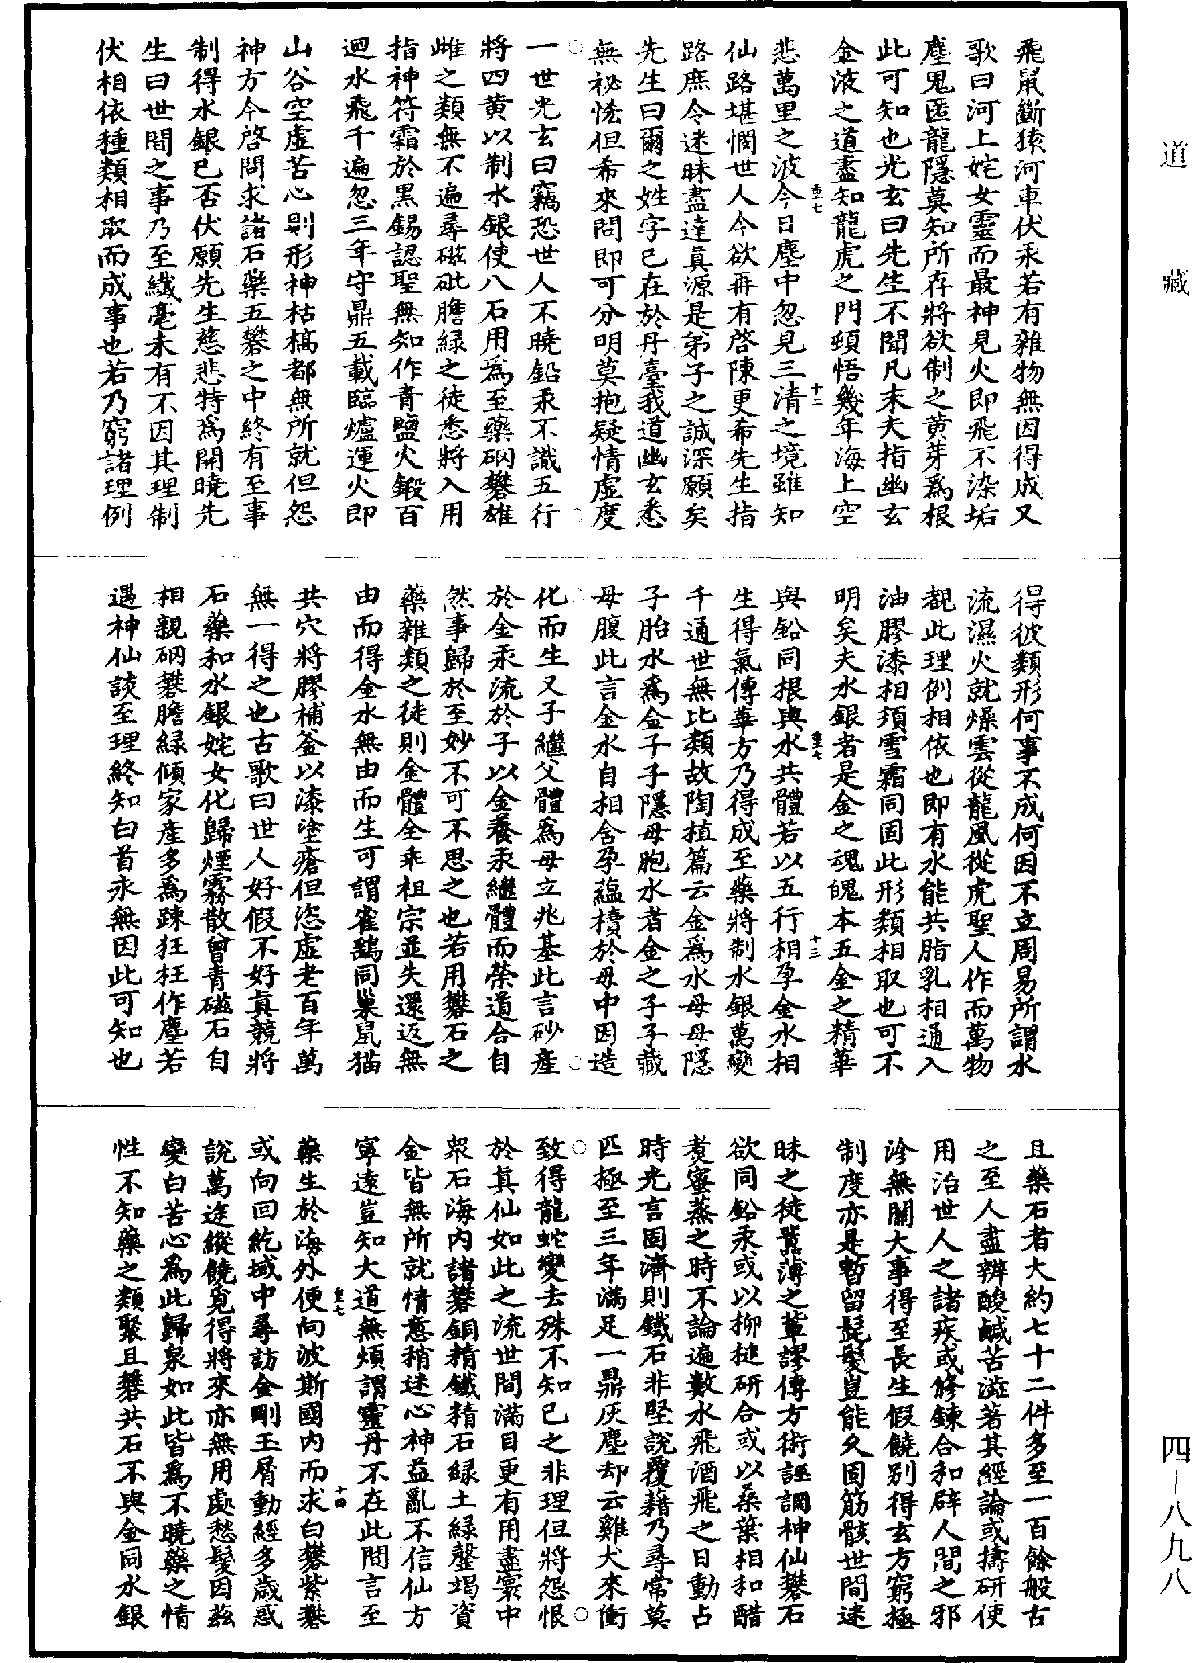 道藏
飛鼠斷猿河車伏汞若有雜物無因得成又
歌曰河上姹女靈而最神見火即飛不染垢
塵鬼匿龍隱莫知所存將欲制之黄芽爲根
此可知也光玄曰先生不聞凡末夫指幽玄
金液之道盡知龍虎之門頓悟幾年海上空
悲萬里之波今日塵中忽見三清之境雖知
仙路堪憫世人今欲再有啓陳更希先生指
路庶令迷昧盡達真源是弟子之誠深願矣
先生曰爾之姓字已在於丹臺我道幽玄悉
無祕悋但希來問即可分明莫抱疑情虛度
一世光玄曰竊恐世人不曉鉛汞不識五行
將四黄以制水銀使八石用爲至藥硇礬雄
雌之類無不遍尋磁砒膽緑之徒悉將入用
指神符霜於黑錫認聖無知作青鹽火鍛百
迴水飛千遍忽三年守鼎五載臨爐運火即
山谷空虛苦心則形神枯槁都無所就但怨
神方今啓問求諸石藥五礬之中終有至事
制得水銀已否伏願先生慈悲特爲開曉先
生曰世間之事乃至纖毫未有不因其理制
伏相依種類相取而成事也若乃窮諸理例
得彼類形何事不成何因不立周易所謂水
流濕火就燥雲從龍風從虎聖人作而萬物
覩此理例相依也即有水能共脂乳相通入
油膠漆相須雪霜同固此形類相取也可不
明矣夫水銀者是金之魂魄本五金之精華
與鉛同根與水共體若以五行相孕金水相
生得氣傳華方乃得成至藥將制水銀萬變
千通世無比類故陶植篇云金爲水母母隱
子胎水爲金子子隱母胞水者金之子子藏
母腹此言金水自相含孕蘊櫝於母中因造
化而生又子繼父體爲母立兆基此言砂產
於金汞流於子以金養汞繼體而榮道合自
然事歸於至妙不可不思之也若用礬石之
藥雜類之徒則金體全乖祖宗並失還返無
由而得金水無由而生可謂雀鷂同巢鼠猫
共穴將膠補釜以漆塗瘡但恣虛老百年萬
無一得之也古歌曰世人好假不好真競將
石藥和水銀姹女化歸煙霧散曾青磁石自
相親硇礬膽緑傾家產多爲踈狂枉作塵若
遇神仙談至理終知白首永無因此可知也
且藥石者大約七十二件多至一百餘般古
之至人盡辨酸鹹苦澁著其經論或擣研使
用治世人之諸疾或修鍊合和辟人間之邪
沴無關大事得至長生假饒别得玄方窮極
制度亦是暫留髭髮豈能久固筋骸世間迷
昧之徒嚚薄之輩謬傳方術誑調神仙礬石
欲同鉛汞或以柳槌研合或以桑葉相和醋
煑蜜蒸之時不論遍數水飛酒飛之日動占
時光言固濟則鐵石非堅說覆藉乃尋常莫
匹極至三年滿足一鼎灰塵却云雞犬來衝
致得龍蛇變去殊不知已之非理但將怨恨
於真仙如此之流世間滿目更有用盡寰中
衆石海内諸礬銅精鐵精石緑土緑罄竭資
金皆無所就情意稍迷心神益亂不信仙方
寧遠豈知大道無煩謂靈丹不在此間言至
藥生於海外便向波斯國内而求白礬紫礬
或向回紇域中尋訪金剛玉屑動經多歲惑
說萬途縱饒覓得將來亦無用處愁髮因兹
變白苦心爲此歸泉如此皆爲不曉藥之情
性不知藥之類聚且礬共石不與金同水銀
四-八九八